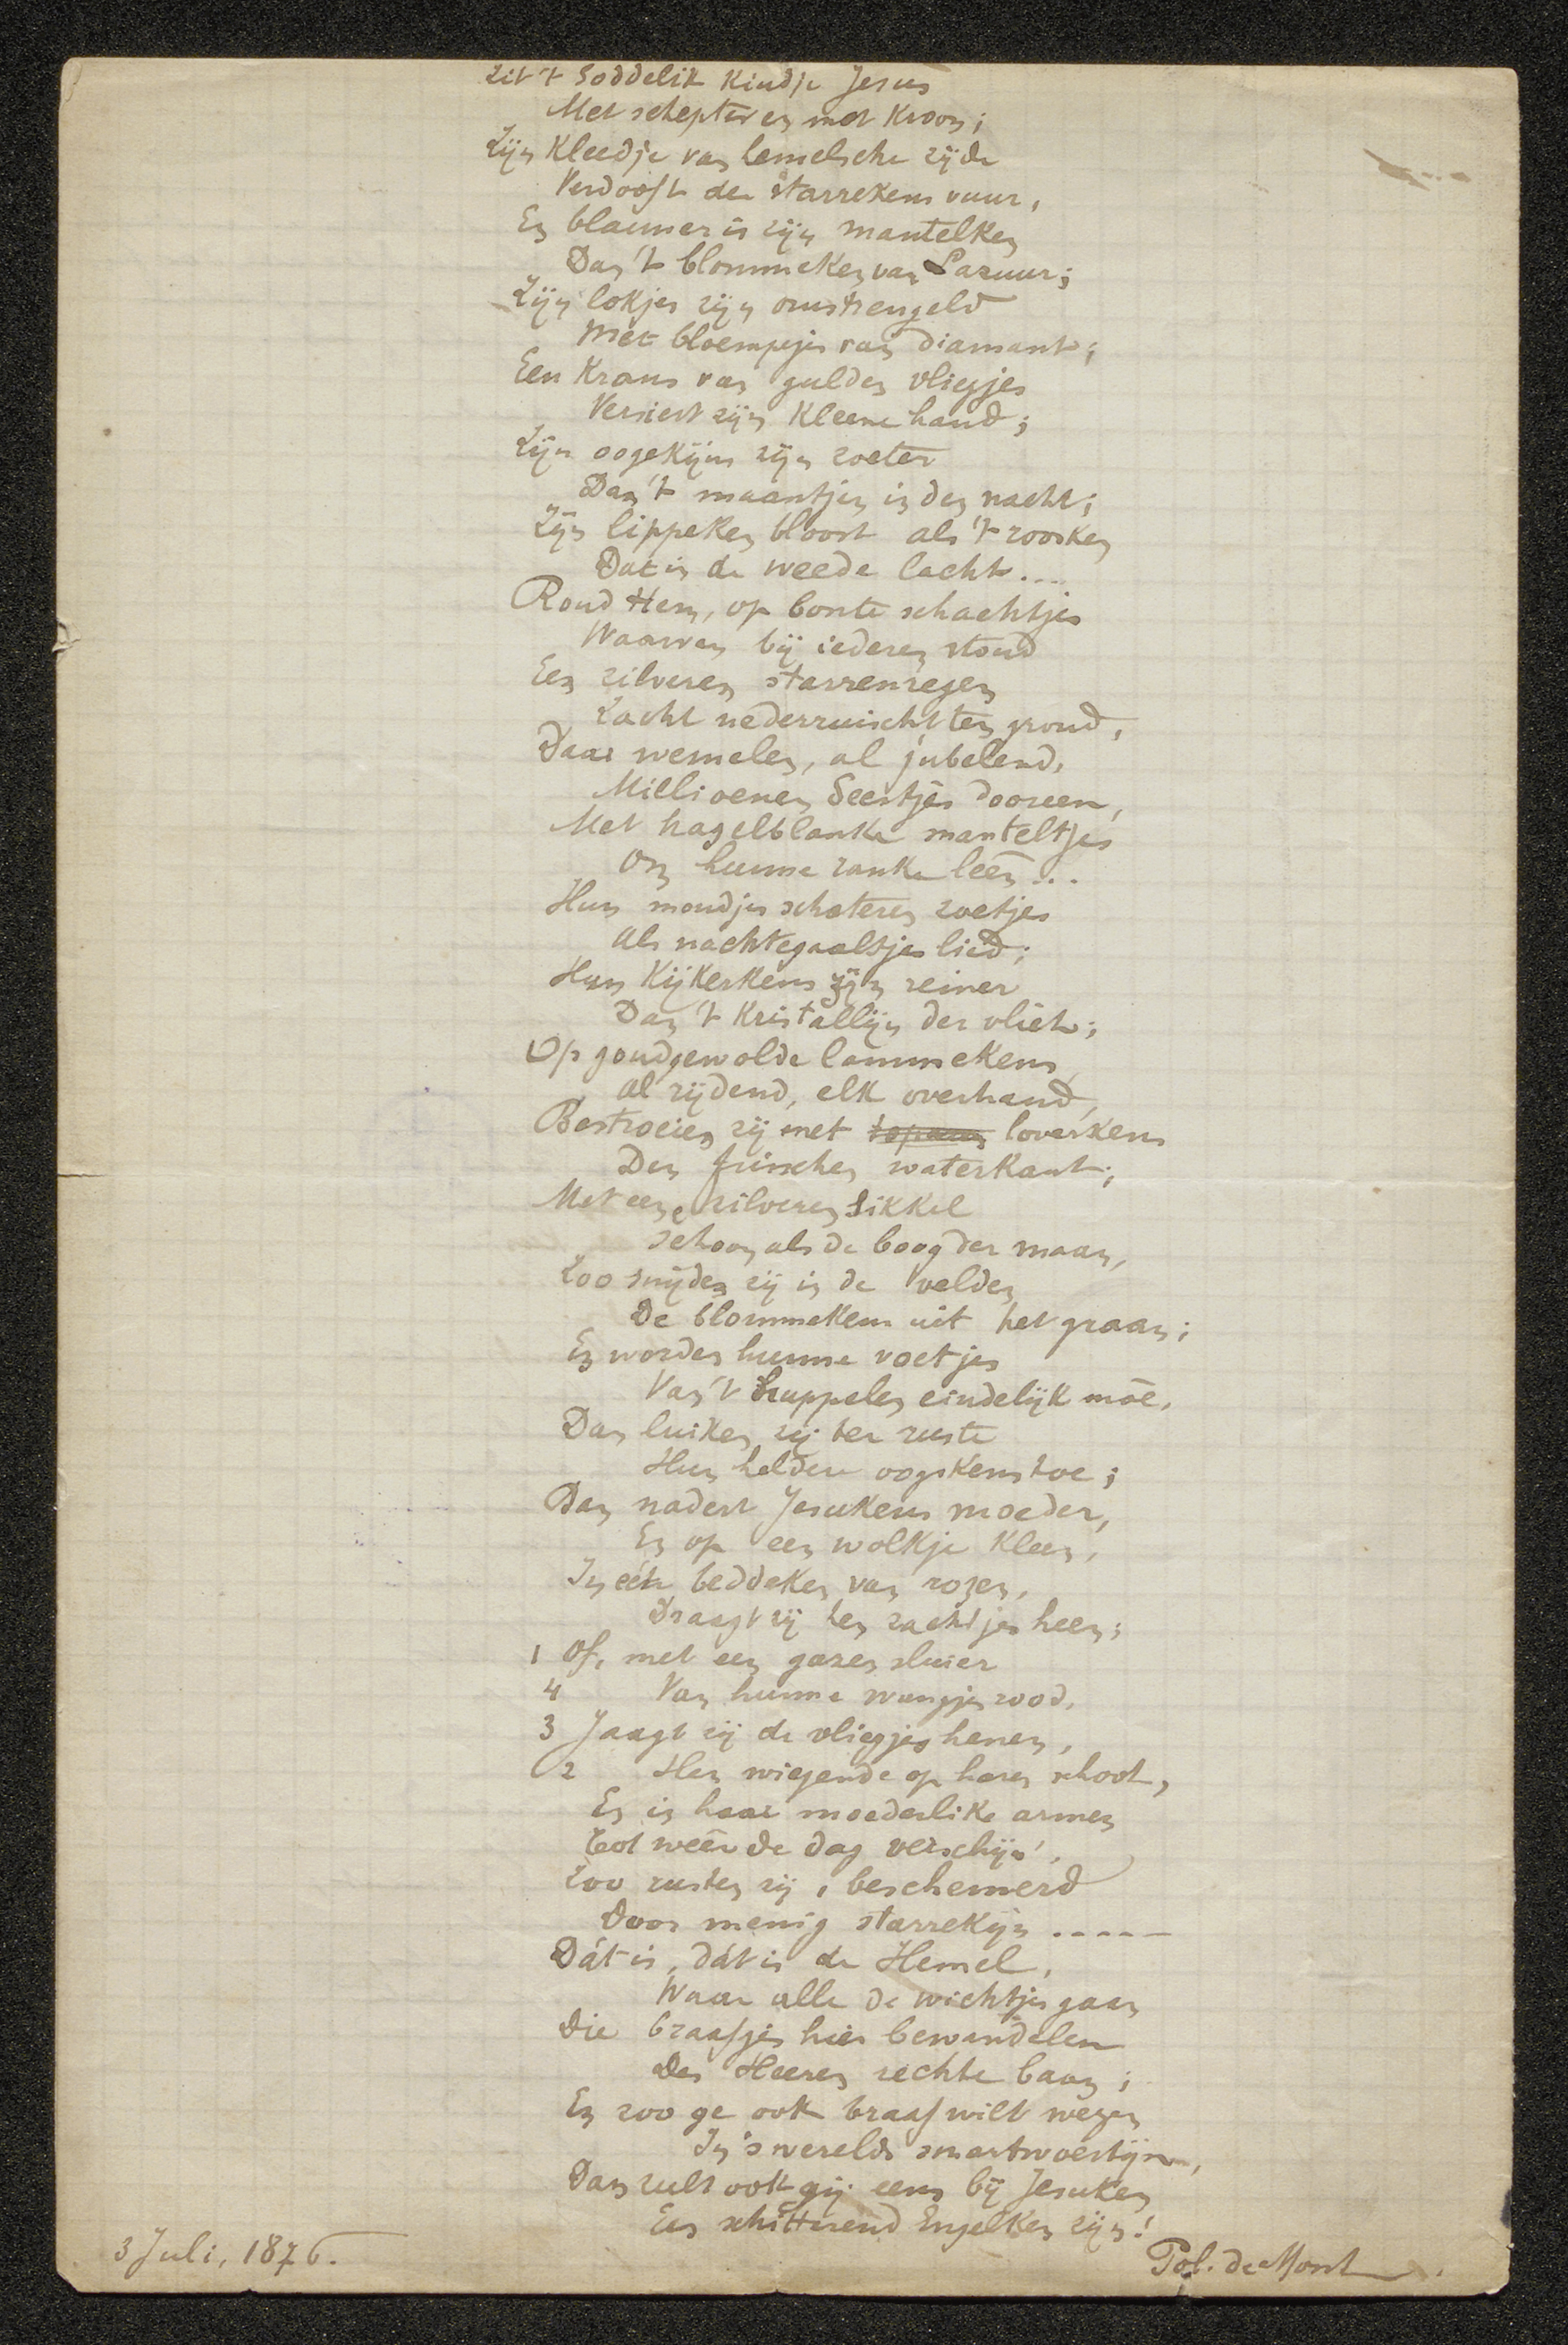 Zit 't Goddelik Kindje Jesus
Met schepter en met Kroon;
Zijn Kleedje van hemelsche zijde
Verdooft der starrekens vuur,
En blauwer is zijn mantelken
Dan 't blommeken van Lazuur;
Zijn lokjes zijn omstrengeld
Met bloempjes van diamant;
Een Krans van gulden vliegjes
Versiert zijn Kleene hand;
Zijn oogekijns zijn zoeter
Dan 't maantjen in den nacht;
Zijn lippeken bloost als 't roosken
Dat in de weede lacht....
Rond Hem, op bonte schachtjes
Waarvan bij iederen stond
Een zilveren starrenregen
Zacht nederruischt ten grond,
Daar wemelen, al jubelend,
Millioenen Geestjes dooreen,
Met hagelblanke manteltjes
Om hunne ranke leên...
Hun mondjes schateren zoetjes
Als nachtegaaltjes lied;
Hun Kijkerkens zijn reiner
Dan 't Kristallijn der vliet;
Op goudgewolde lammekens
Al rijdend, elk overhand,
Bestroeien zij met loverkens
Den frisschen waterkant;
Met eene zilveren Sikkel
Schoon als de boog der maan,
Zoo snijden zij in de velden
De blommekens uit het graan;
En worden hunne voetjes
Van 't huppelen eindelijk môe,
Dan luiken zij ter ruste
Hun heldere oogskens toe;
Dan nadert Jesukens moeder,
En op een wolkje Kleen,
In één beddeken van rozen,
Draagt zij hen zachtjes heen;
1 Of, met een gazen sluier
4 Van hunne wangjes rood,
3 Jaagt zij de vliegjes henen,
2 Hen wiegende op haren schoot,
En in haar moederlike armen
Tot weêr de dag verschijn',
Zoo rusten zij, beschermd
Door menig starrekijn .....
Dát is, dát is de Hemel,
Waar alle de wichtjes gaan
Die braafjes hier bewandelen
Des Heeren rechte baan;
En zoo ge ook braaf wilt wezen
In 's werelds smartwoestijn,
Dan zult ook gij eens bij Jesuken
Een schitterend Engelken zijn!
3 Juli, 1876.
Pol. de Mont.